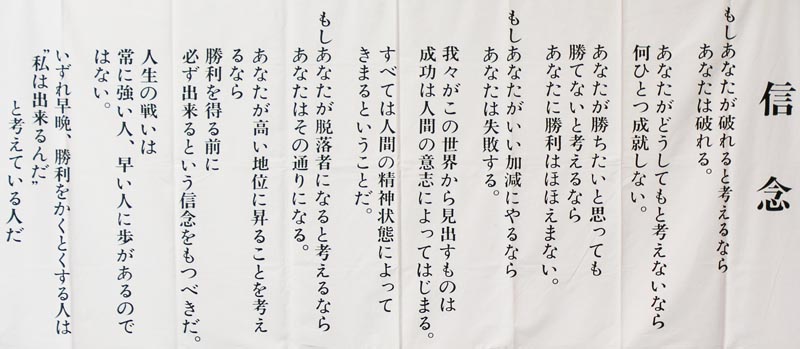 信念
もしあなたが破れると考えるなら
あなたは破れる。
あなたがどうしてもと考えないなら
何ひとつ成就しない。
あなたが勝ちたいと思っても
勝てないと考えるなら
あなたに勝利はほほえまない。
もしあなたがいい加減にやるなら
あなたは失敗する。
我々がこの世界から見出すものは
成功は人間の意志によってはじまる。
すべては人間の精神状態によって
きまるということだ。
もしあなたが脱落者になると考えるなら
あなたはその通りになる。
あなたが高い地位に昇ることを考え
るなら
勝利を得る前に
必ず出来るという信念をもつべきだ。
人生の戦いは
常に強い人、早い人に歩があるので
はない。
いずれ早晩、勝利をかくとくする人は
"私は出来るんだ"
と考えている人だ